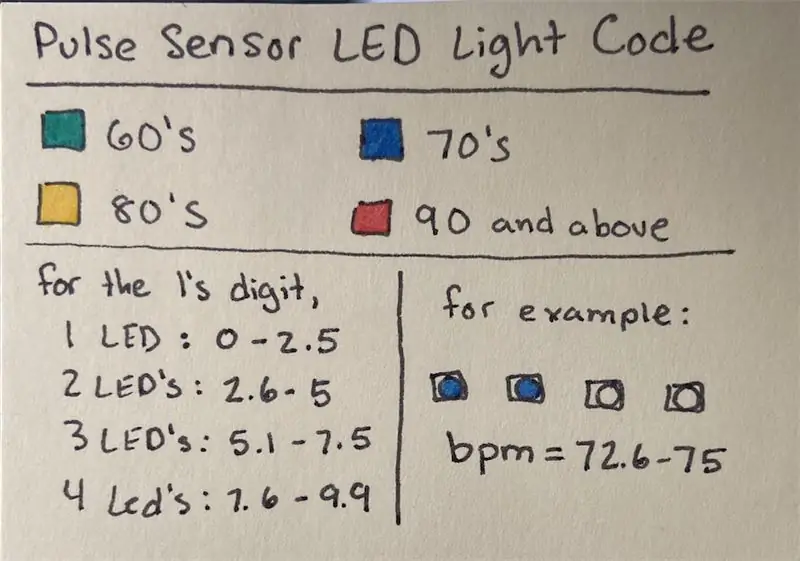 Pulse Sensor LED Light Code
60's 70's
80's 90 and above
for the 1's digit,
1 LED : 0 - 2.5
2 LED's : 2.6 - 5
3 LED's : 5.1 - 7.5
4 Led's : 7.6 - 9.9
for example:
bpm = 72.6-75